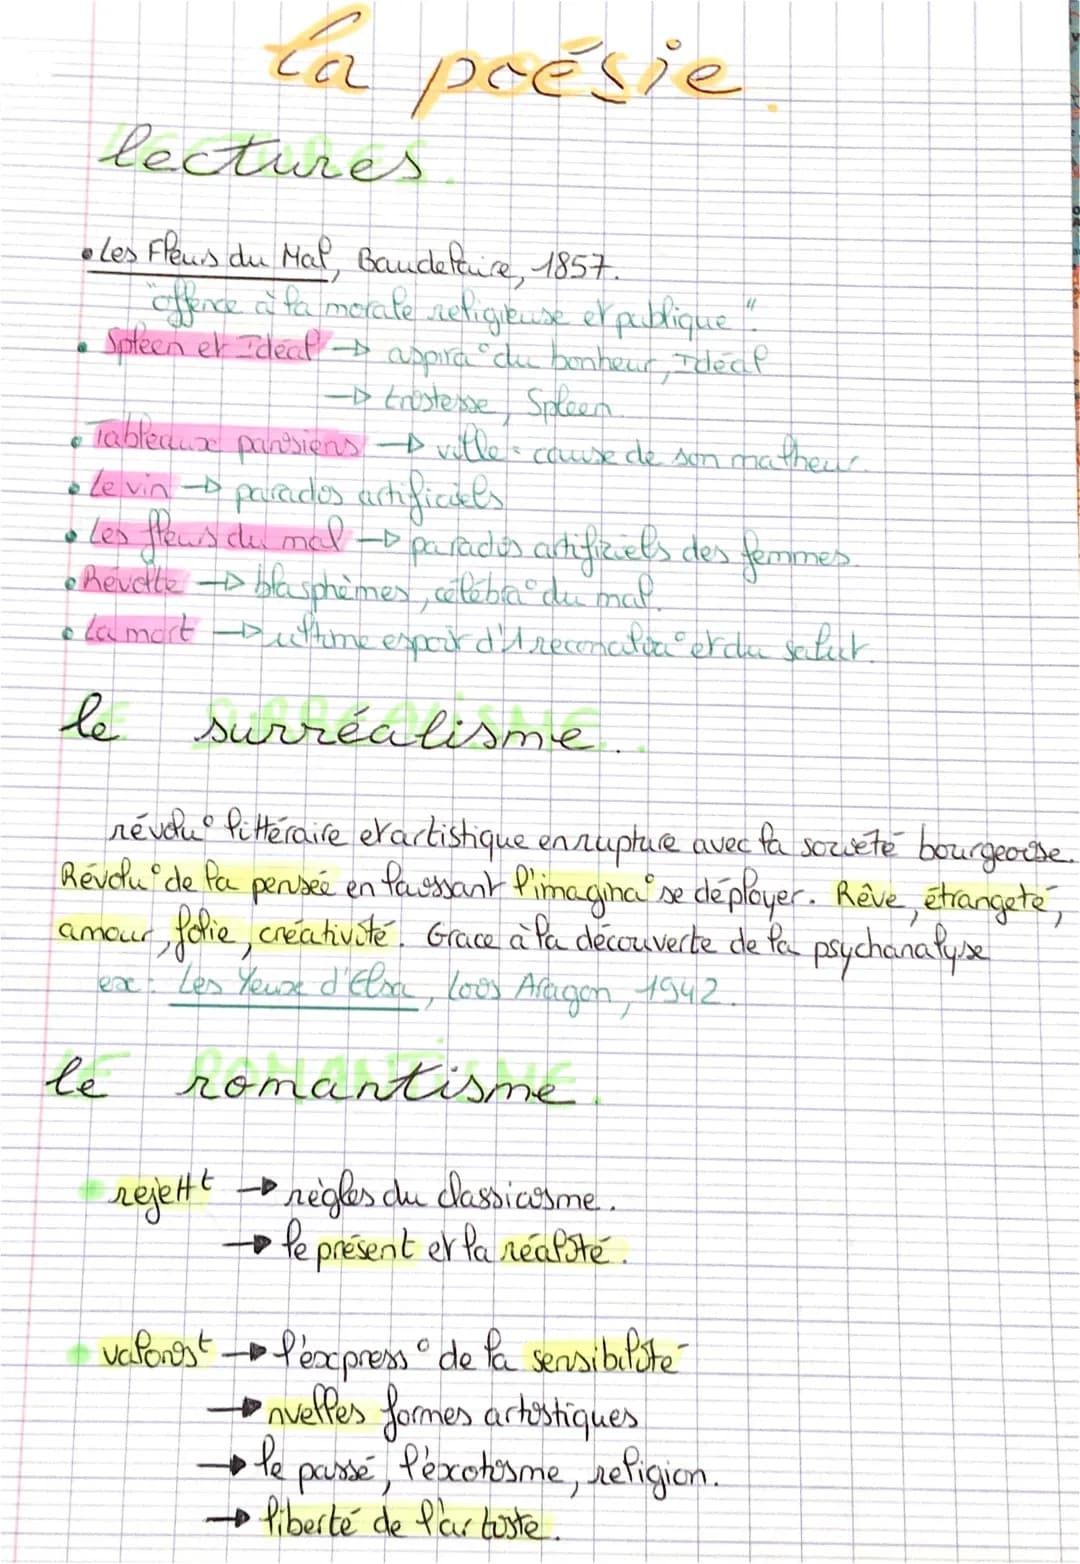 la poésie.
lectures.
• Les Fleurs du Mal, Baudelaire, 1857.
"offence à la morale religieuse et publique".
• Spleen et Idéal → aspira° du bonheur, Idéal
→ tristesse, Spleen
• Tableaux parisiens → ville = cause de son malheur.
• Le vin → paradis artificiels
• Les fleurs du mal → paradis artificiels des femmes.
• Révolte → blasphèmes, célébra° du mal.
• La mort → ultime espoir d'1 reconcilia° et du salut.
le surréalisme.
révolu° littéraire et artistique en rupture avec la société bourgeoise.
Révolu° de la pensée en laissant l'imagina° se déployer. Rêve, étrangeté,
amour, folie, créativité. Grace à la découverte de la psychanalyse
ex: Les Yeux d'Elsa, Louis Aragon, 1942.
le romantisme.
rejettt → règles du classicisme.
→ le présent et la réalité.
valorist → l'express° de la sensibilité
→ nvelles formes artistiques
→ le passé, l'exotisme, religion.
→ liberté de l'artiste.